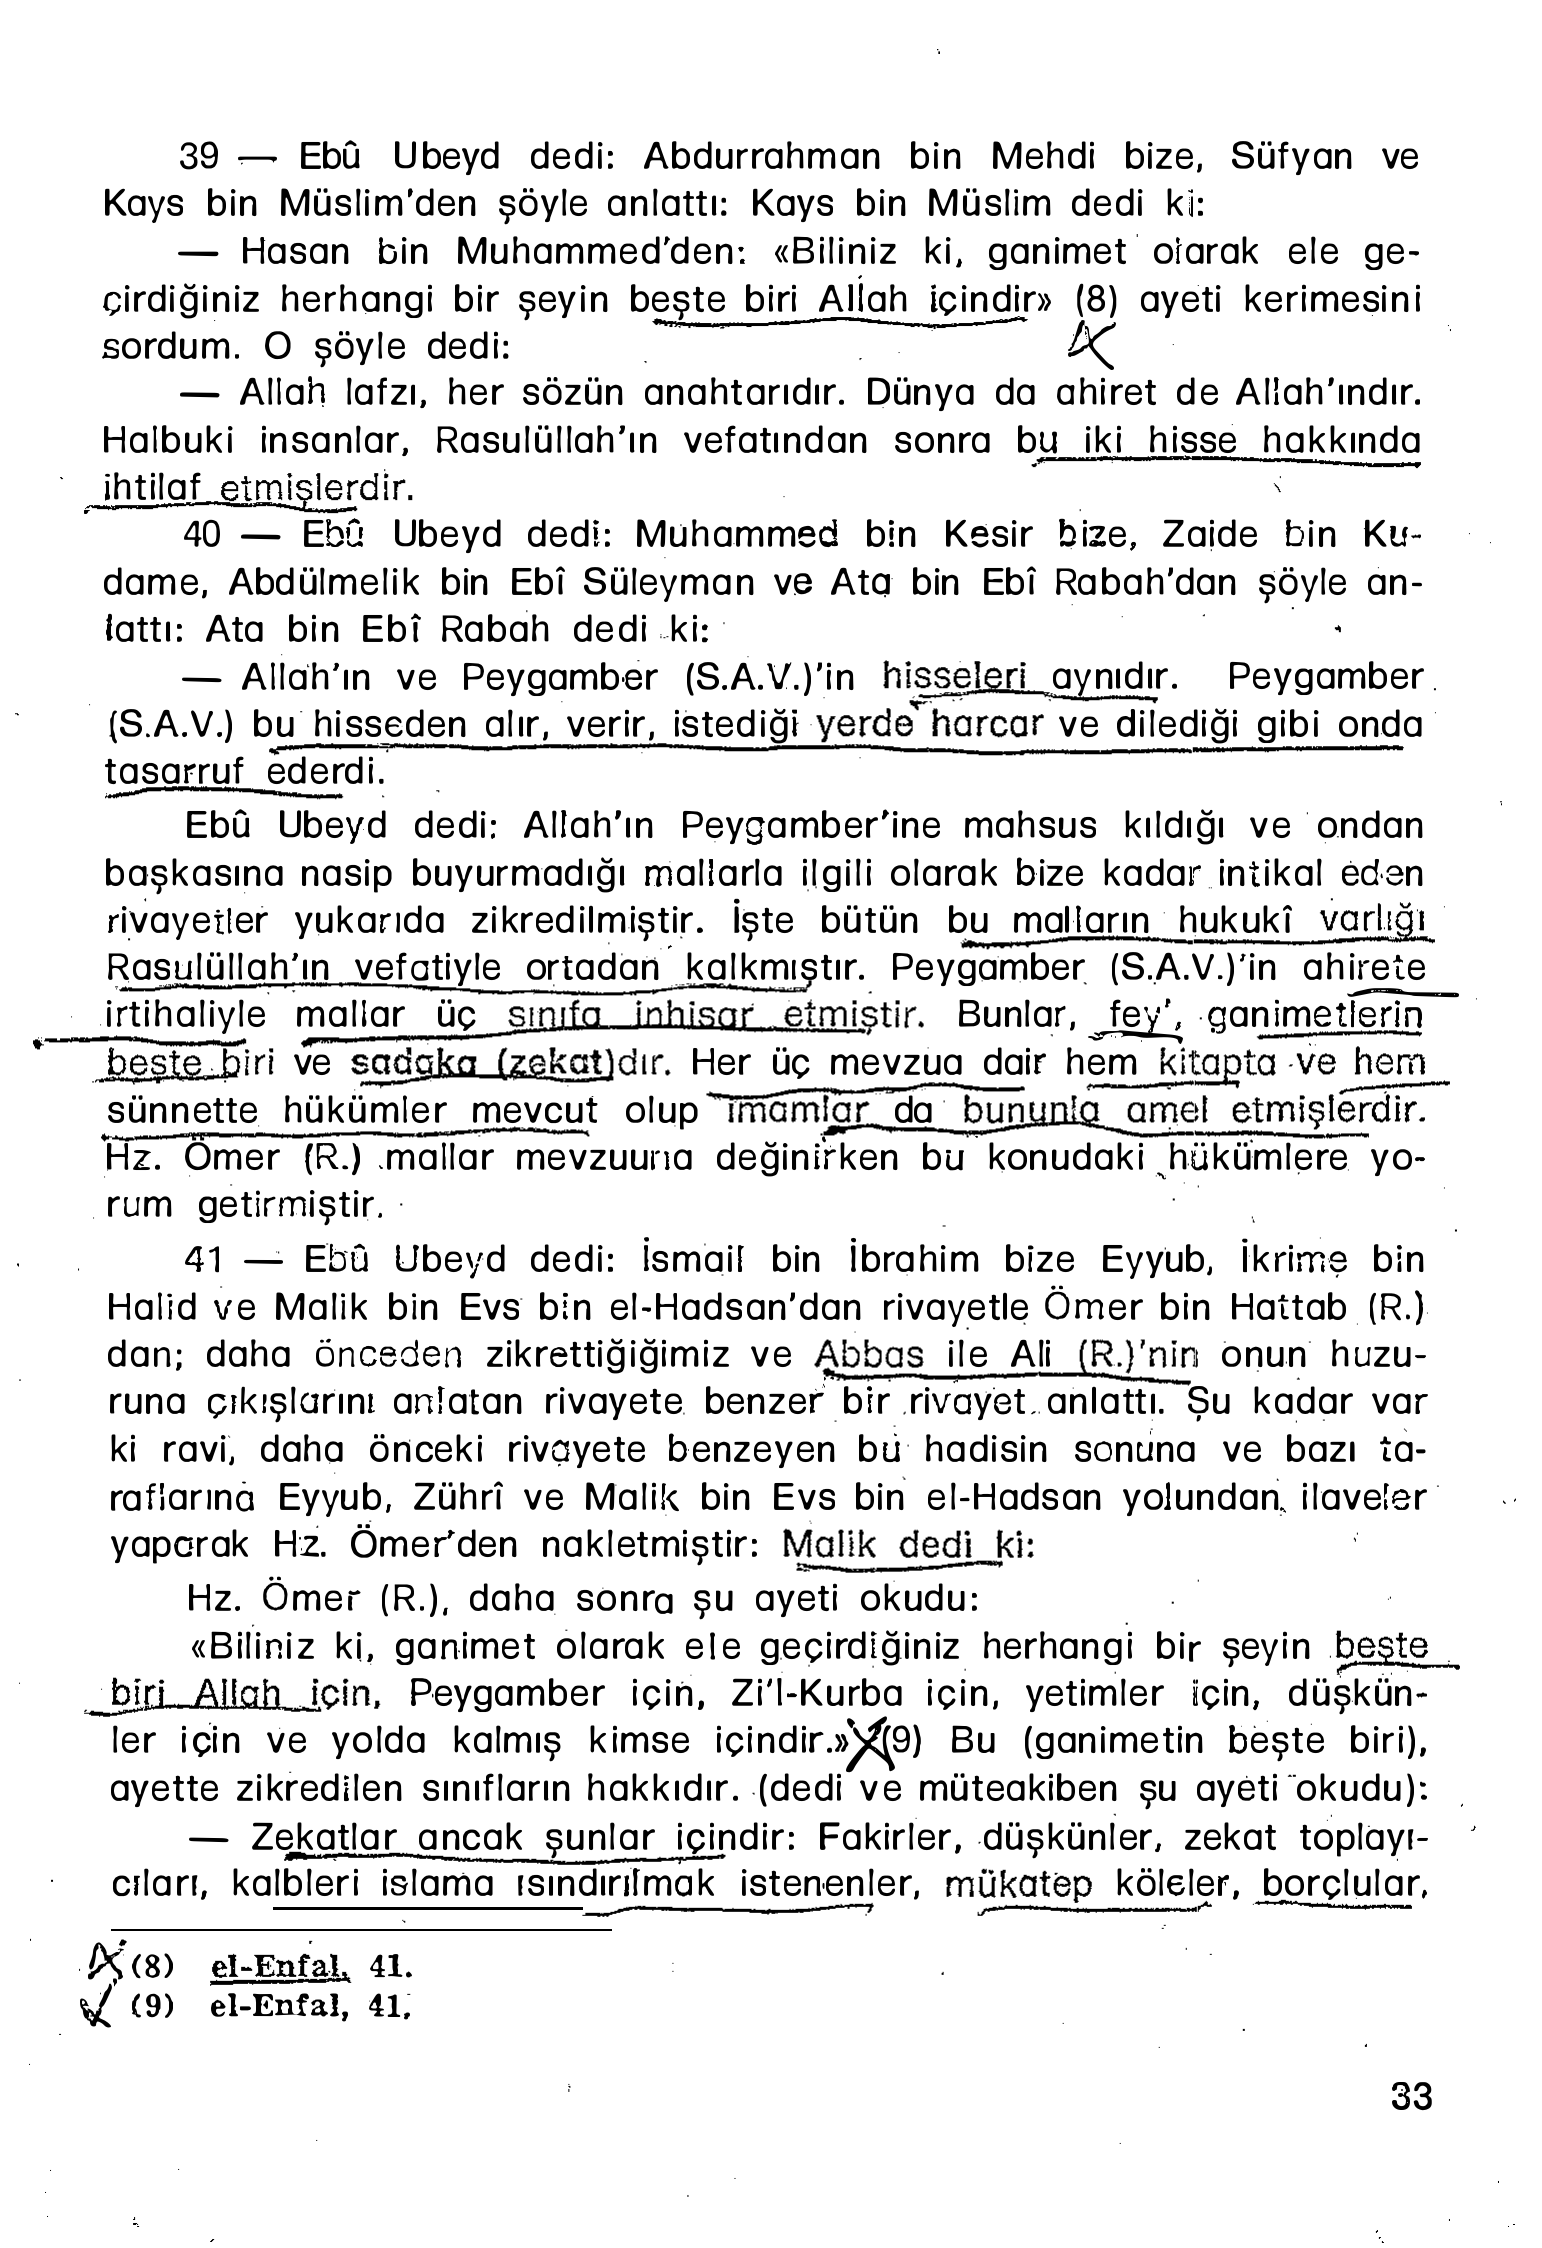 39 — Ebû Ubeyd dedi: Abdurrahman bin Mehdi bize, Süfyan ve
Kays bin Müslim'den şöyle anlattı: Kays bin Müslim dedi ki:
— Hasan bin Muhammed'den: «Biliniz ki, ganimet olarak ele ge-
çirdiğiniz herhangi bir şeyin beşte biri Allah içindir» (8) ayeti kerimesini
sordum. O şöyle dedi:
— Allah lafzı, her sözün anahtarıdır. Dünya da ahiret de Allah'ındır.
Halbuki insanlar, Rasulüllah'ın vefatından sonra bu iki hisse hakkında
ihtilaf etmişlerdir.
40 — Ebû Ubeyd dedi: Muhammed bin Kesir bize, Zaide bin Ku-
dame, Abdülmelik bin Ebî Süleyman ve Ata bin Ebî Rabah'dan şöyle an-
lattı: Ata bin Ebî Rabah dedi ki:
— Allah'ın ve Peygamber (S.A.V.)'in hisseleri aynıdır. Peygamber
(S.A.V.) bu hisseden alır, verir, istediği yerde harcar ve dilediği gibi onda
tasarruf ederdi.
Ebû Ubeyd dedi: Allah'ın Peygamber'ine mahsus kıldığı ve ondan
başkasına nasip buyurmadığı mallarla ilgili olarak bize kadar intikal eden
rivayetler yukarıda zikredilmiştir. İşte bütün bu malların hukukî varlığı
Rasulüllah'ın vefatiyle ortadan kalkmıştır. Peygamber (S.A.V.)'in ahirete
irtihaliyle mallar üç sınıfa inhisar etmiştir. Bunlar, fey', ganimetlerin
beşte biri ve sadaka (zekat)dır. Her üç mevzua dair hem kitapta ve hem
sünnette hükümler mevcut olup imamlar da bununla amel etmişlerdir.
Hz. Ömer (R.) mallar mevzuuna değinirken bu konudaki hükümlere yo-
rum getirmiştir.
41 — Ebû Ubeyd dedi: İsmail bin İbrahim bize Eyyub, İkrime bin
Halid ve Malik bin Evs bin el-Hadsan'dan rivayetle Ömer bin Hattab (R.)
dan; daha önceden zikrettiğiğimiz ve Abbas ile Ali (R.)'nin onun huzu-
runa çıkışlarını anlatan rivayete benzer bir rivayet anlattı. Şu kadar var
ki ravi, daha önceki rivayete benzeyen bu hadisin sonuna ve bazı ta-
raflarına Eyyub, Zührî ve Malik bin Evs bin el-Hadsan yolundan ilaveler
yaparak Hz. Ömer'den nakletmiştir: Malik dedi ki:
Hz. Ömer (R.), daha sonra şu ayeti okudu:
«Biliniz ki, ganimet olarak ele geçirdiğiniz herhangi bir şeyin beşte
biri Allah için, Peygamber için, Zi'l-Kurba için, yetimler için, düşkün-
ler için ve yolda kalmış kimse içindir.» (9) Bu (ganimetin beşte biri),
ayette zikredilen sınıfların hakkıdır. (dedi ve müteakiben şu ayeti okudu):
— Zekatlar ancak şunlar içindir: Fakirler, düşkünler, zekat toplayı-
cıları, kalbleri islama ısındırılmak istenenler, mükatep köleler, borçlular,
(8) el-Enfal, 41.
(9) el-Enfal, 41.
33